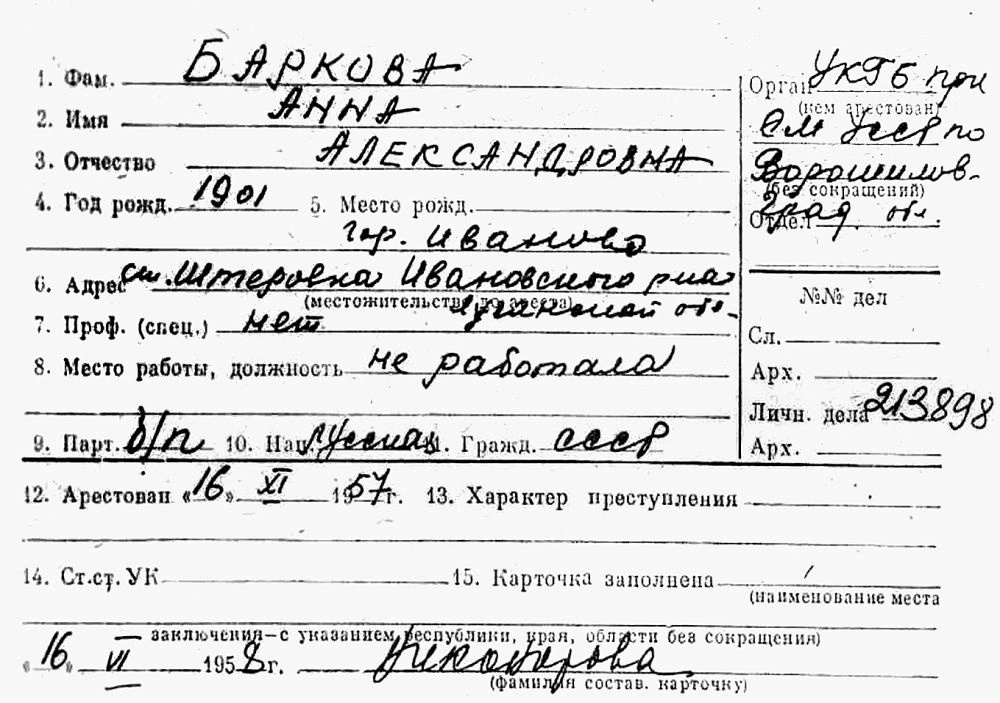 1. Фам. БАРКОВА
2. Имя АННА
3. Отчество АЛЕКСАНДРОВНА
4. Год рожд. 1901 5. Место рожд.
гор. Иваново
6. Адрес ст. Штеровка Ивановского р-на
(местожительство до ареста) Луганской обл.
7. Проф. (спец.) нет
8. Место работы, должность не работала
9. Парт. б/п 10. Нац. русская 11. Гражд. СССР
Орган УКГБ при
(кем арестован)
СМ УССР по
Ворошилов-
(без сокращений)
град. обл.
Отдел
№№ дел
Сл.
Арх.
Личн. дела 213898
Арх.
12. Арестован «16» XI 1957 г. 13. Характер преступления
14. Ст.ст. УК 15. Карточка заполнена
(наименование места
заключения—с указанием республики, края, области без сокращения)
«16» VI 1958 г. Никонорова
(фамилия состав. карточку)